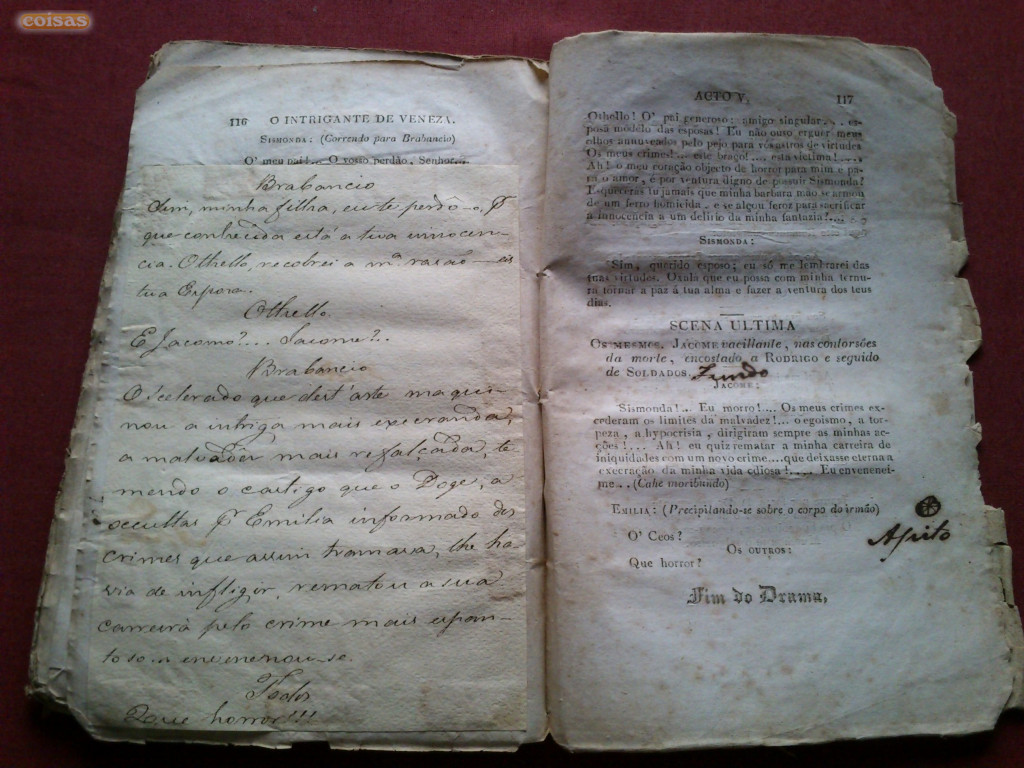 coisas
116 O INTRIGANTE DE VENEZA.
SISMONDA: (Correndo para Brabancio)
O' meu pai!... O vosso perdão, Senhor...
Brabancio
Sim, minha filha, eu te perdô-o, p.
que conhecida está a tua innocen-
cia. Othello, recobrei a mª rasão — eis
tua Espoza.
Othello.
E Jacomo?... Jacome?..
Brabancio
O scelerado que dest'arte maqui-
nou a intriga mais execranda,
a malvadêz mais refalçada, te-
mendo o castigo que o Doge, a
occultas pr Emilia informado dos
crimes que assim tramava, lhe ha-
via de infligir, rematou a sua
carreira pelo crime mais espan-
toso: envenenou-se.
Todos
Que horror!!!
ACTO V, 117
Othello! O' pai generoso: amigo singular... es-
posa modelo das esposas! Eu não ouso erguer meus
olhos annuveados pelo pejo para vós astros de virtudes
Os meus crimes!.... este braço!.... esta victima!....
Ah! o meu coração objecto de horror para mim e pa-
ra o amor, é por ventura digno de possuir Sismonda?
Esquecerás tu jamais que minha barbara mão se armou
de um ferro homicida, e se alçou feroz para sacrificar
a innocencia a um delirio da minha fantazia!....
SISMONDA:
Sim, querido esposo; eu só me lembrarei das
tuas virtudes. Oxala que eu possa com minha ternu-
ra tornar a paz á tua alma e fazer a ventura dos teus
dias.
SCENA ULTIMA
OS MESMOS, JACOME vacillante, nas contorsões
da morte, encostado a RODRIGO e seguido
de SOLDADOS. Fundo
JACOME:
Sismonda!... Eu morro!.... Os meus crimes ex-
cederam os limites da malvadez!... o egoismo, a tor-
peza, a hypocrisia, dirigiram sempre as minhas ac-
ções!.... Ah! eu quiz rematar a minha carreira de
iniquidades com um novo crime....que deixasse eterna a
execração da minha vida odiosa!.... Eu envenenei-
me.. (Cahe moribundo)
EMILIA: (Precipitando-se sobre o corpo do irmão)
Apito
O' Ceos?
OS OUTROS:
Que horror?
Fim do Drama,